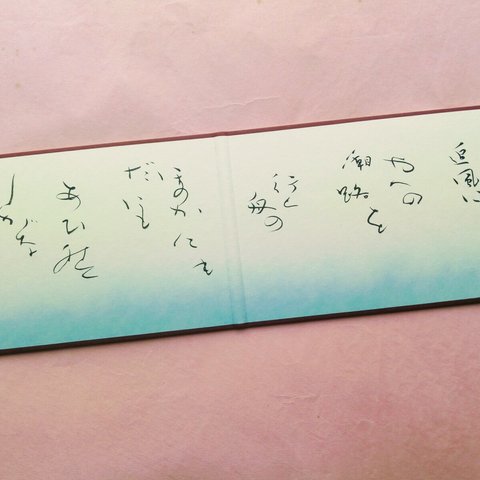 追風に
やへの
潮路を
行く
舟の
ほのかに
だにも
あひ見て
しがな